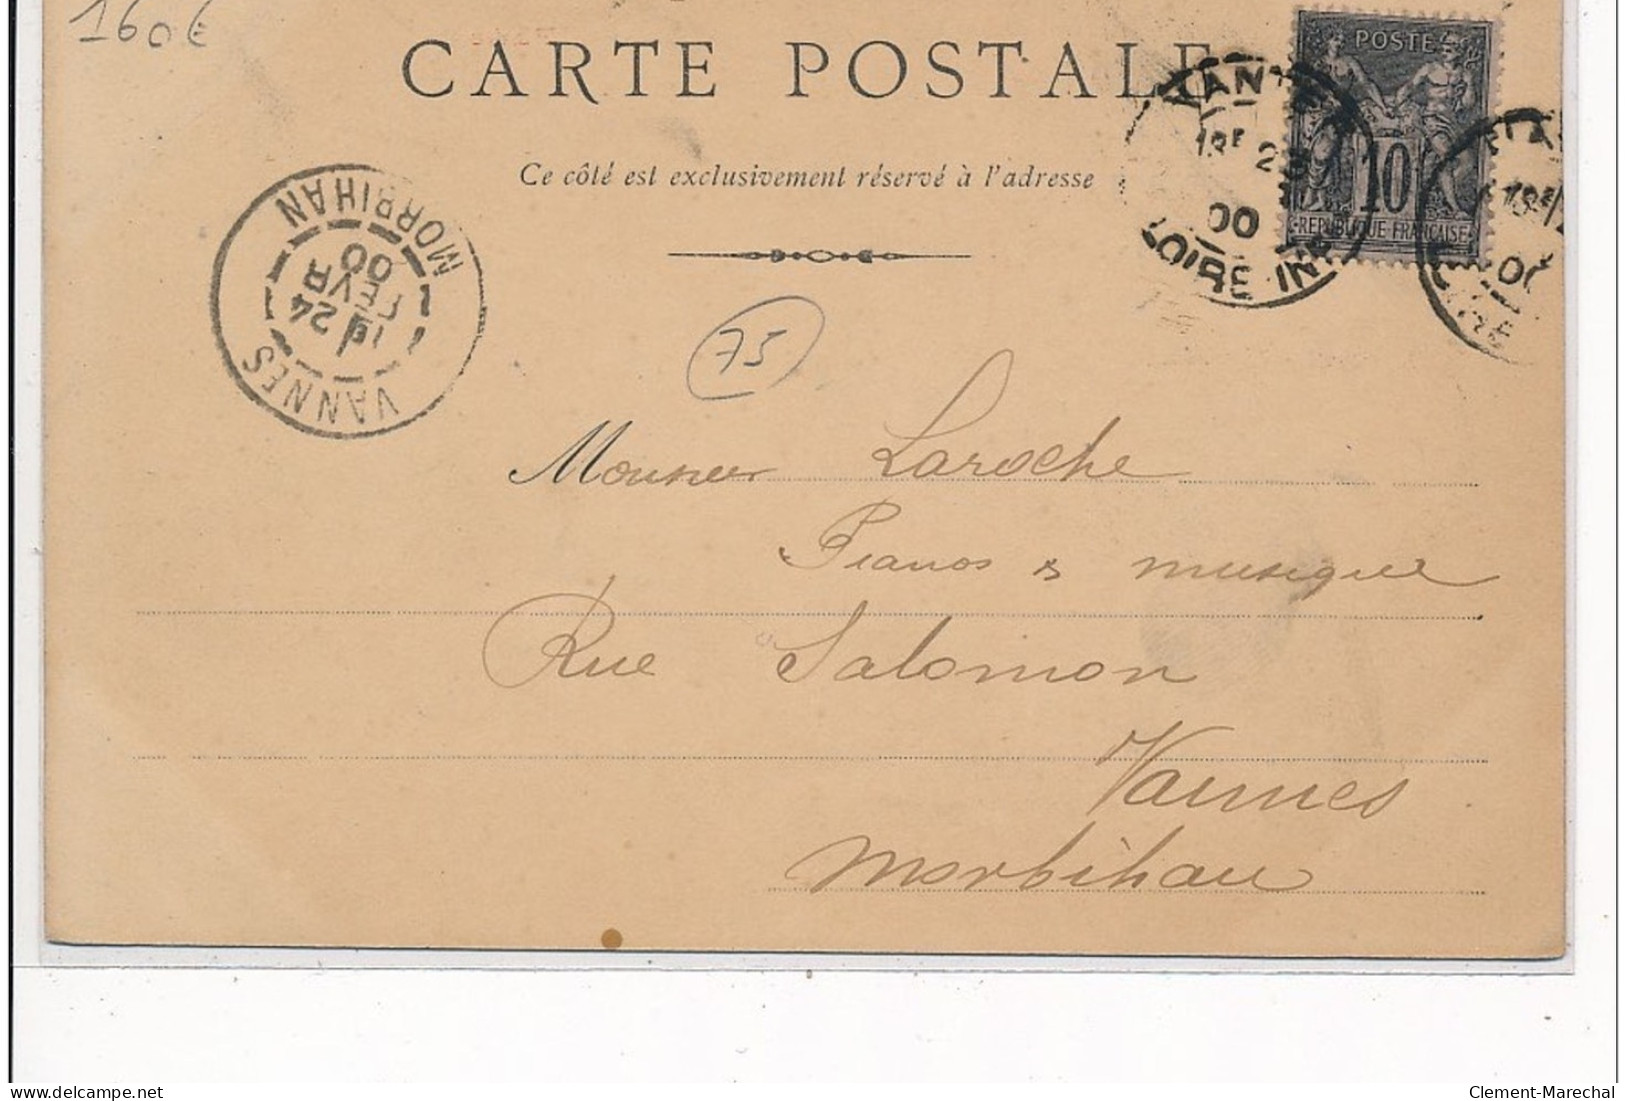 160€
CARTE POSTALE
Ce côté est exclusivement réservé à l'adresse
POSTE
10
REPUBLIQUE FRANÇAISE
NANTES
18E 23
00
LOIRE INF
18E
00
VANNES
24
FEVR
00
MORBIHAN
75
Monsieur Laroche
Pianos & musique
Rue Salomon
Vannes
Morbihan
delcampe.net
Clement-Marechal